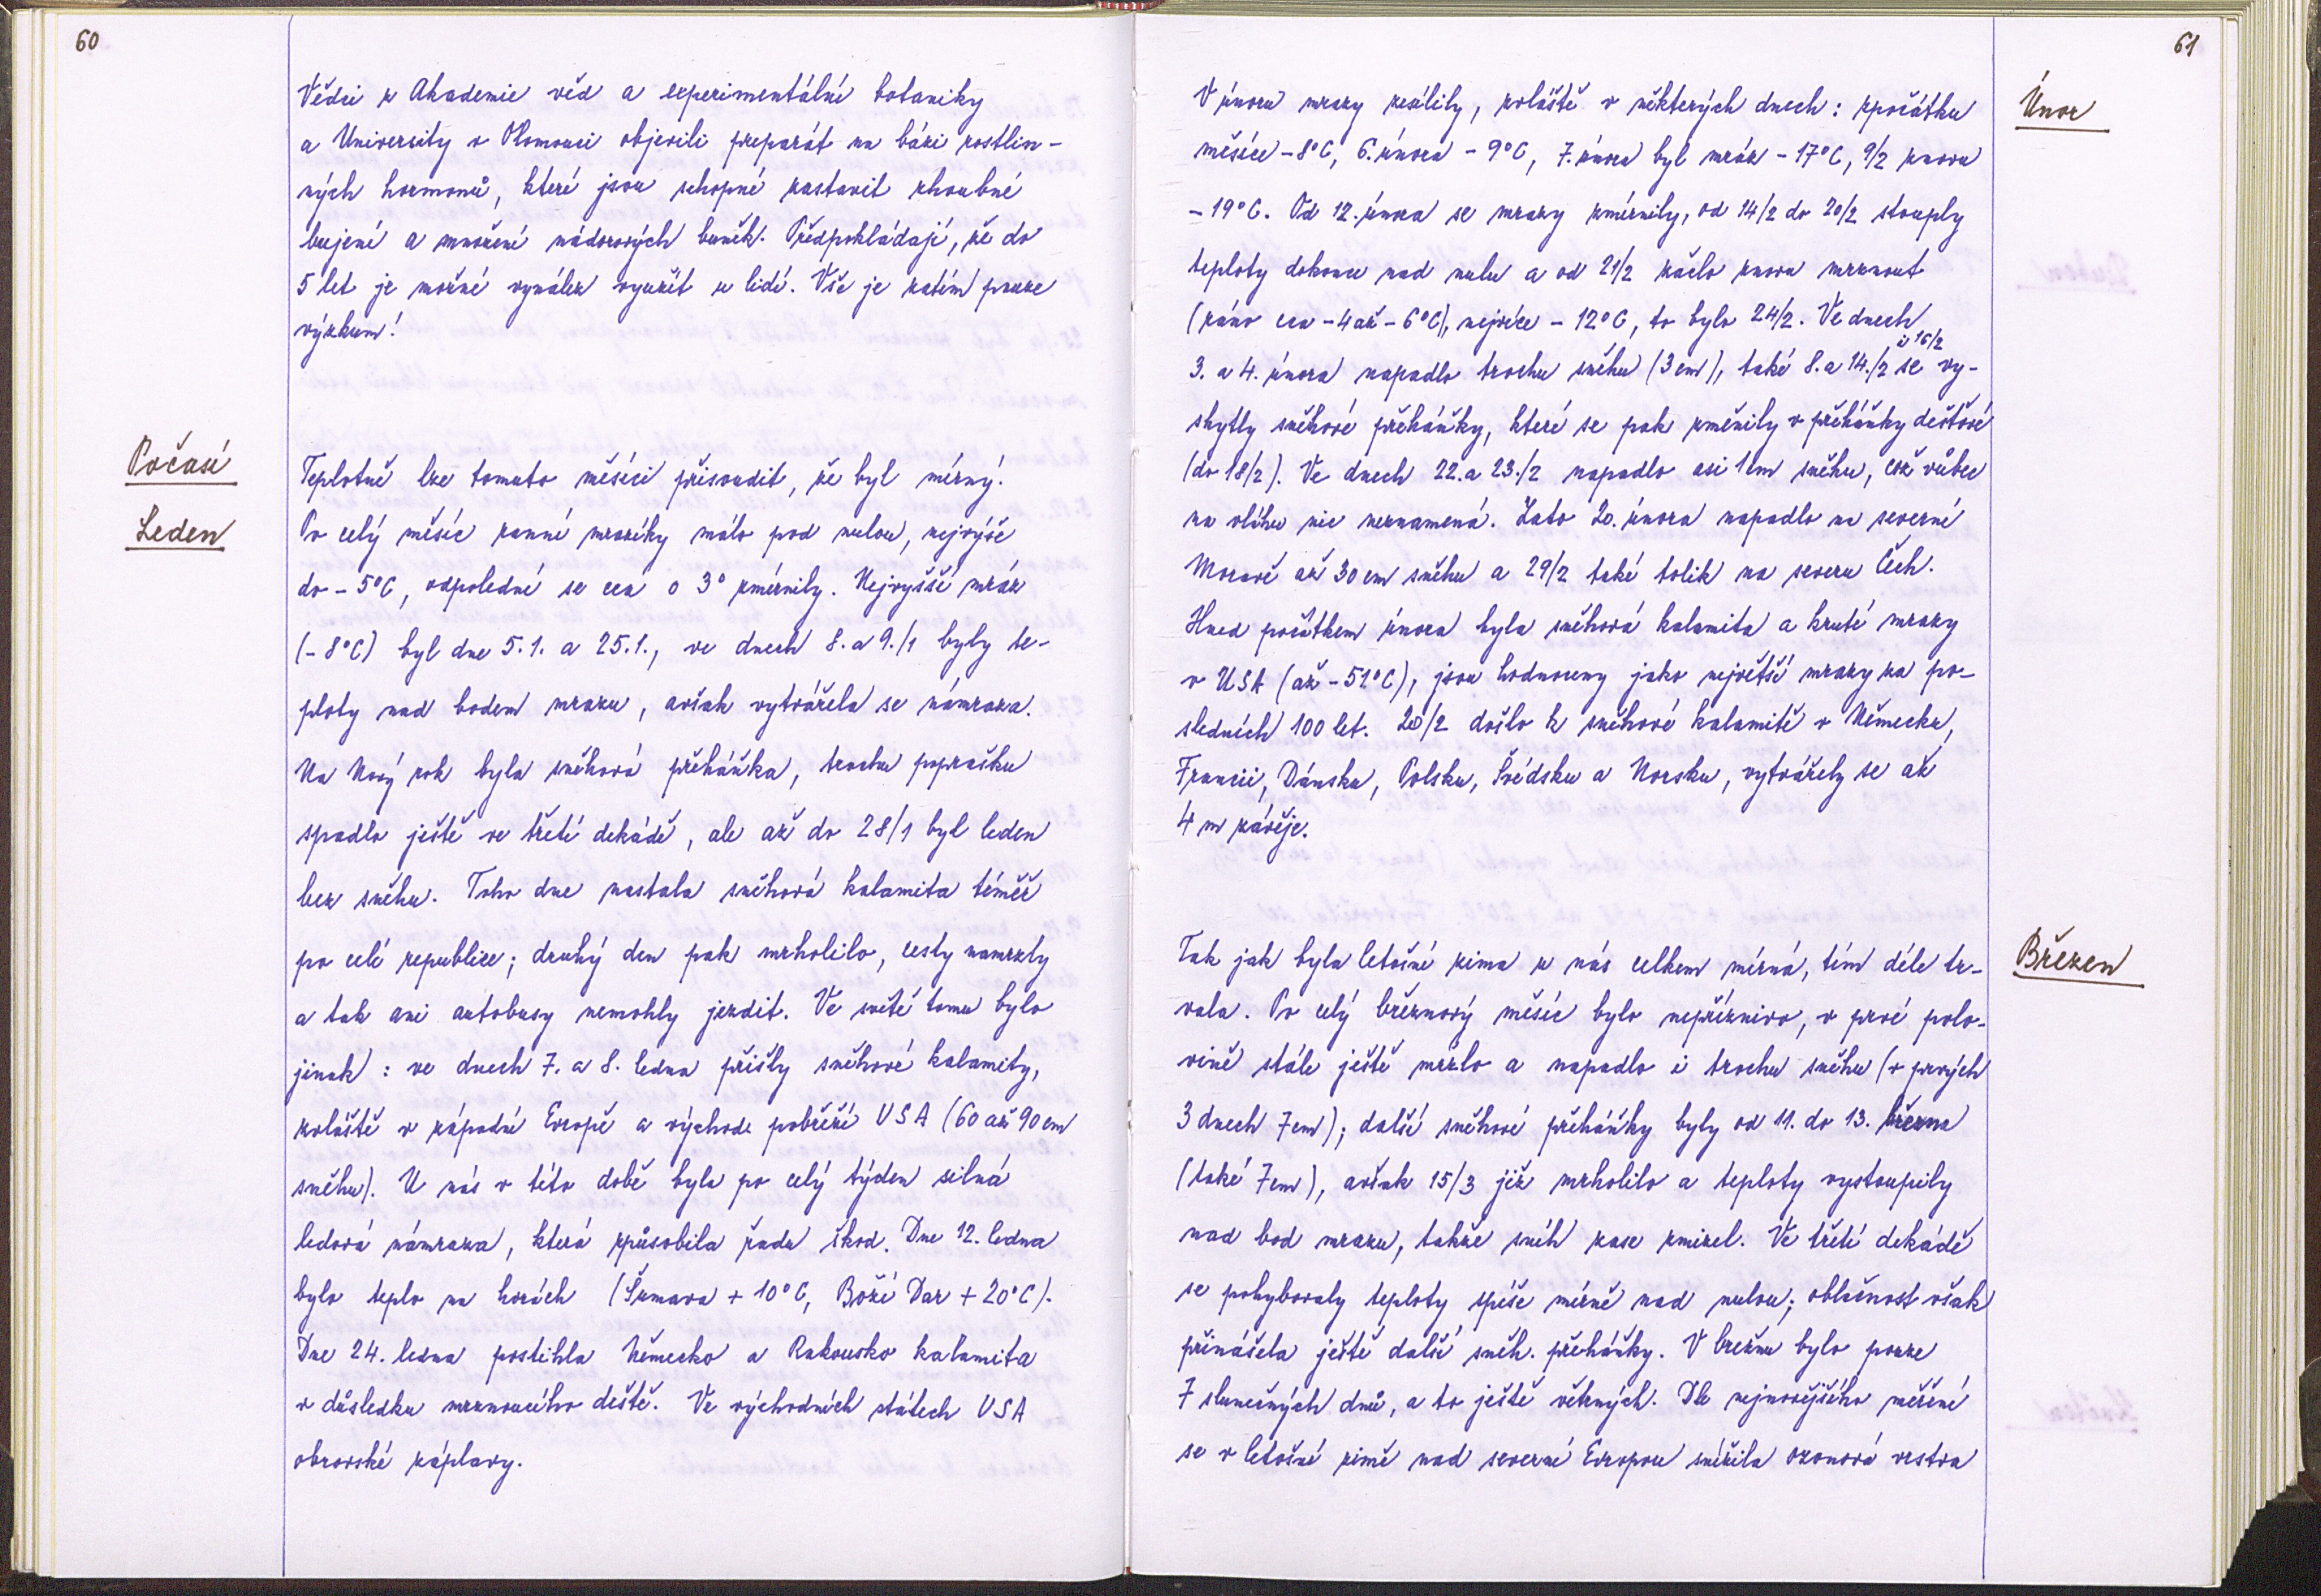 60
Vědci z Akademie věd a experimentální botaniky
a University v Olomouci objevili preparát na bázi rostlin-
ných hormonů, které jsou schopné zastavit zhoubné
bujení a množení nádorových buněk. Předpokládají, že do
5 let je možné vynález využít u lidí. Vše je zatím pouze
výzkum!
Počasí
Teplotně lze tomuto měsíci přisoudit, že byl mírný.
Leden
Po celý měsíc ranní mrazíky málo pod nulou, nejvýše
do -5°C, odpoledne se cca o 3° zmírnily. Nejvyšší mráz
(-8°C) byl dne 5.1. a 25.1., ve dnech 8. a 9./1 byly te-
ploty nad bodem mrazu, avšak vytvářela se námraza.
Na Nový rok byla sněhová přeháňka, trochu poprašku
spadlo ještě ve třetí dekádě, ale až do 28/1 byl leden
bez sněhu. Toho dne nastala sněhová kalamita téměř
po celé republice; druhý den pak mrholilo, cesty namrzly
a tak ani autobusy nemohly jezdit. Ve světě tomu bylo
jinak: ve dnech 7. a 8. ledna přišly sněhové kalamity,
zvláště v západní Evropě a východ. pobřeží USA (60 až 90 cm
sněhu). U nás v této době byla po celý týden silná
ledová námraza, která způsobila řadu škod. Dne 12. ledna
bylo teplo na horách (Šumava + 10°C, Boží Dar + 20°C).
Dne 24. ledna postihla Německo a Rakousko kalamita
v důsledku mrznoucího deště. Ve východních státech USA
obrovské záplavy.
61
Únor
V únoru mrazy zesílily, zvláště v některých dnech: zpočátku
měsíce -8°C, 6. února -9°C, 7. února byl mráz -17°C, 9/2 znovu
-19°C. Od 12. února se mrazy zmírnily, od 14/2 do 20/2 stouply
teploty dokonce nad nulu a od 21/2 začlo znovu mrznout
(ráno cca -4 až -6°C), nejvíce -12°C, to bylo 24/2. Ve dnech
3. a 4. února napadlo trochu sněhu (3 cm), také 8. a 14./2 i 16/2 se vy-
skytly sněhové přeháňky, které se pak změnily v přeháňky dešťové
(do 18/2). Ve dnech 22. a 23./2 napadlo asi 1 cm sněhu, což vůbec
na vláhu nic neznamená. Zato 20. února napadlo na severní
Moravě až 30 cm sněhu a 29/2 také tolik na severu Čech.
Hned počátkem února byla sněhová kalamita a kruté mrazy
v USA (až -51°C), jsou hodnoceny jako největší mrazy za po-
sledních 100 let. 20/2 došlo k sněhové kalamitě v Německu,
Francii, Dánsku, Polsku, Švédsku a Norsku, vytvářely se až
4 m závěje.
Březen
Tak jak byla letošní zima u nás celkem mírná, tím déle tr-
vala. Po celý březnový měsíc bylo nepříznivo, v prvé polo-
vině stále ještě mrzlo a napadlo i trochu sněhu (v prvých
3 dnech 7 cm); další sněhové přeháňky byly od 11. do 13. března
(také 7 cm), avšak 15/3 již mrholilo a teploty vystoupily
nad bod mrazu, takže sníh zase zmizel. Ve třetí dekádě
se pohybovaly teploty spíše mírně nad nulou; oblačnost však
přinášela ještě další sněh. přeháňky. V březnu bylo pouze
7 slunečných dnů, a to ještě větrných. Dle nejnovějšího měření
se v letošní zimě nad severní Evropou snížila ozonová vrstva